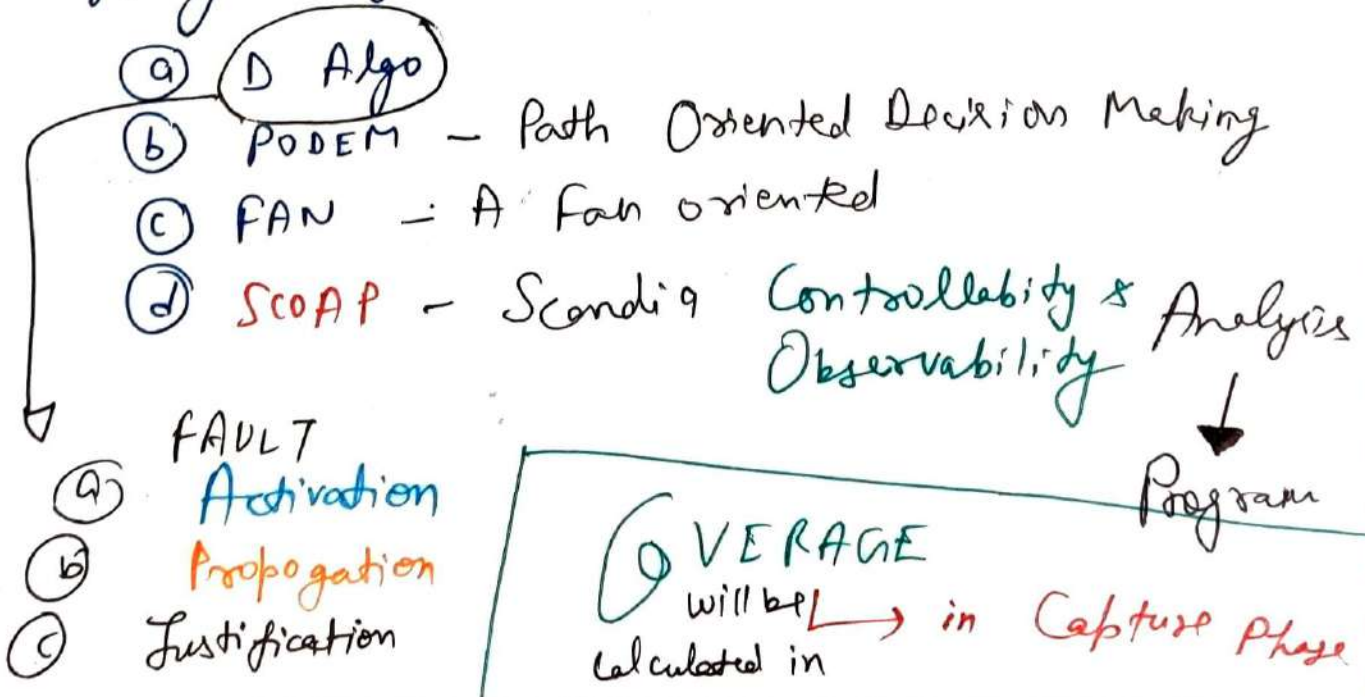 a D Algo
b PODEM - Path Oriented Decision Making
c FAN - A Fan oriented
d SCOAP - Scandia Controllabity & Analysis
Observability
Program
FAULT
a Activation
b Propogation
c Justification
COVERAGE
will be
calculated in
in Capture Phase